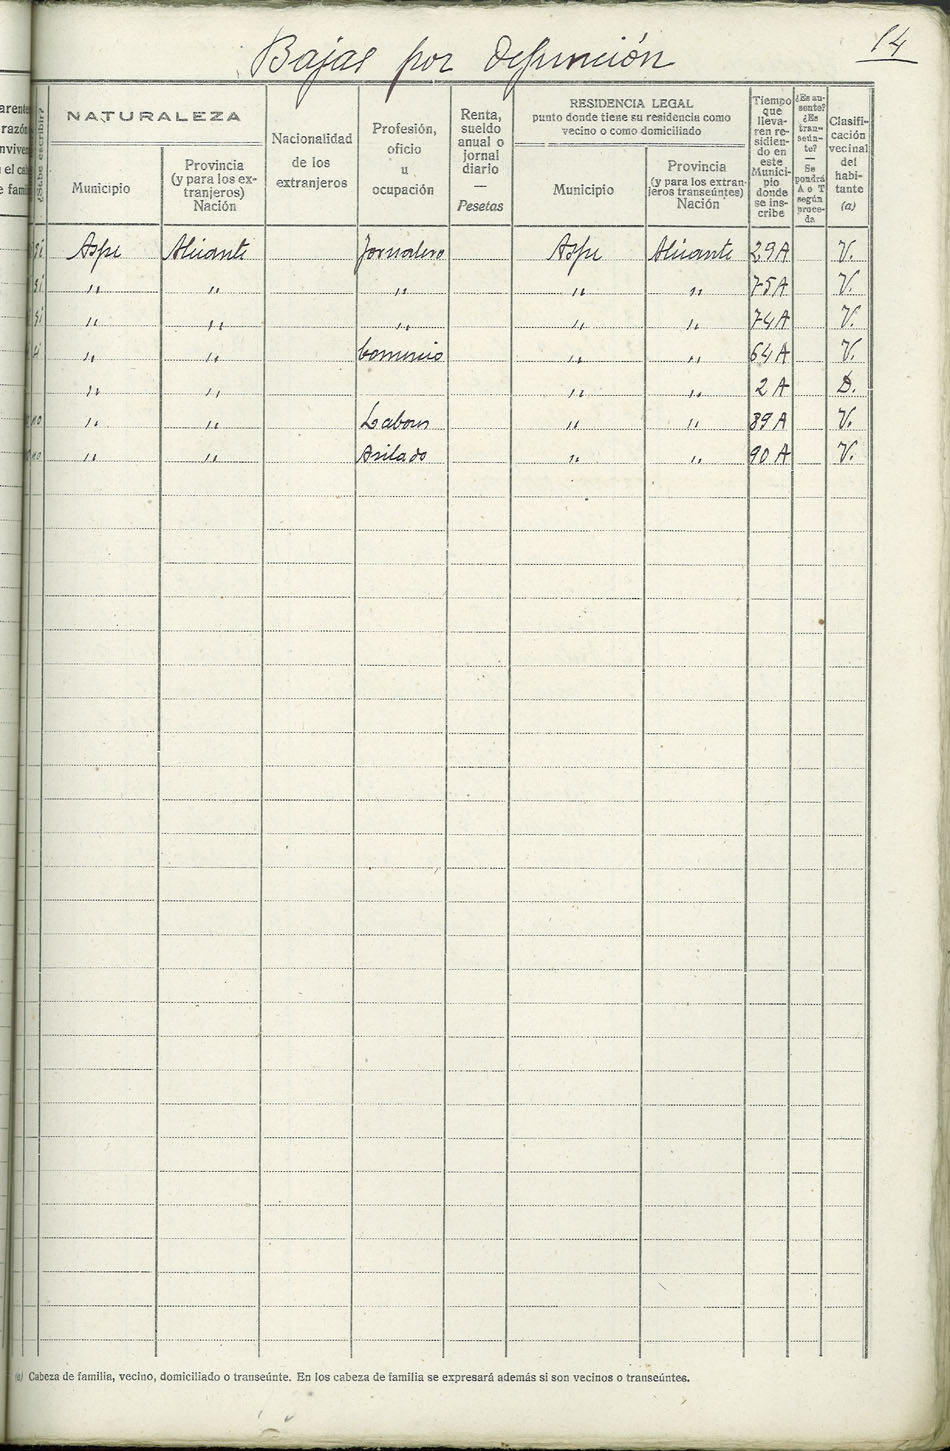 14
Bajas por defunción
¿Sabe escribir?
NATURALEZA
Municipio
Provincia
(y para los ex-
tranjeros)
Nación
Nacionalidad
de los
extranjeros
Profesión,
oficio
u
ocupación
Renta,
sueldo
anual o
jornal
diario
—
Pesetas
RESIDENCIA LEGAL
punto donde tiene su residencia como
vecino o como domiciliado
Municipio
Provincia
(y para los extran-
jeros transeúntes)
Nación
Tiempo
que
lleva-
ren re-
sidien-
do en
este
Munici-
pio
donde
se ins-
cribe
¿Es au-
sente?
¿Es
tran-
seún-
te?
—
Se
pondrá
A o T
según
proce-
da
Clasifi-
cación
vecinal
del
habi-
tante
(a)
si Aspe Alicante Jornalero Aspe Alicante 29 A V.
si " " " " " 75 A V.
si " " " " " 74 A V.
" " Comercio " " 64 A V.
" " " " 2 A D.
no " " Labores " " 89 A V.
no " " Asilado " " 90 A V.
(a) Cabeza de familia, vecino, domiciliado o transeúnte. En los cabeza de familia se expresará además si son vecinos o transeúntes.